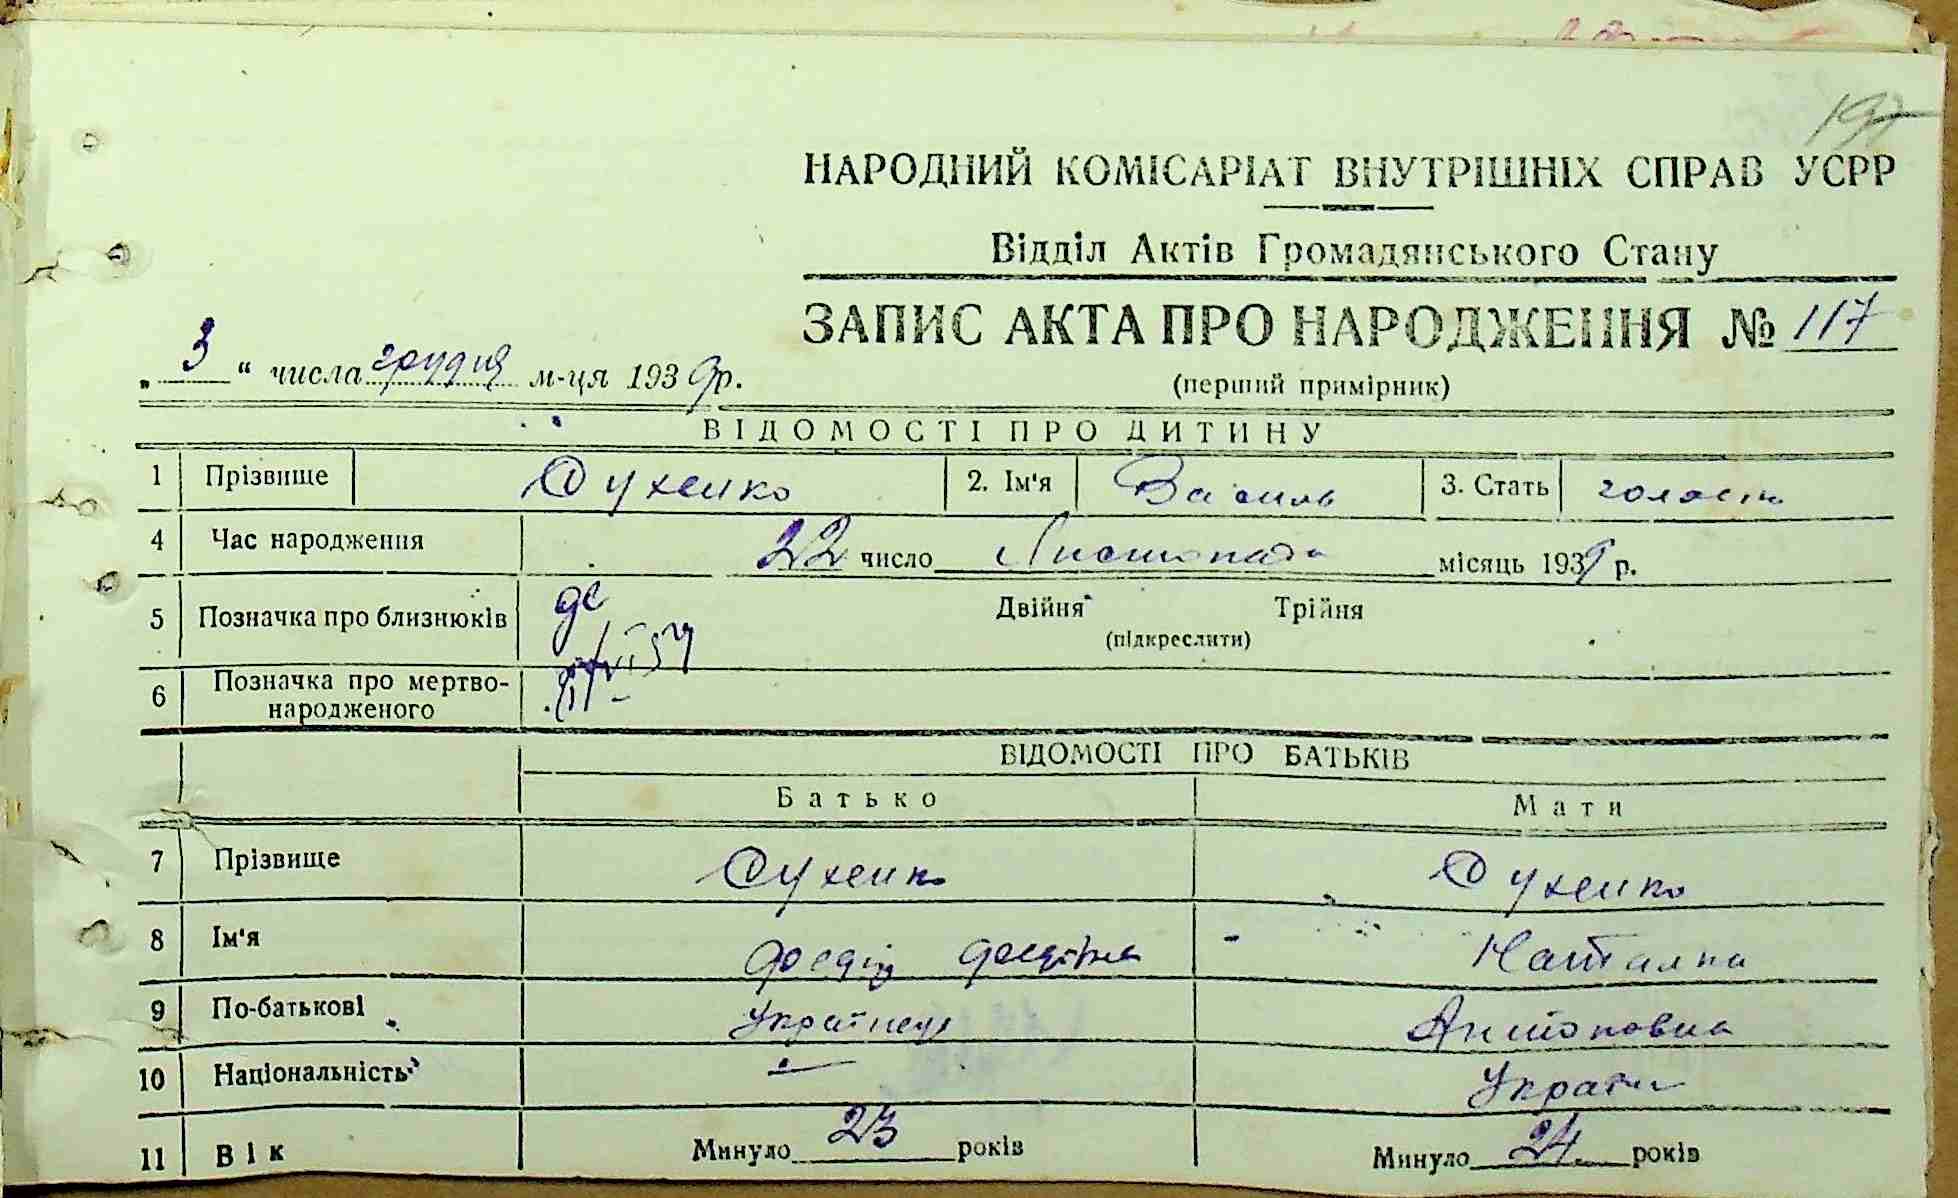 197
НАРОДНИЙ КОМІСАРІАТ ВНУТРІШНІХ СПРАВ УСРР
Відділ Актів Громадянського Стану
ЗАПИС АКТА ПРО НАРОДЖЕННЯ № 117
„ 3 “ числа грудня м-ця 1939 р.
(перший примірник)
ВІДОМОСТІ ПРО ДИТИНУ
1 Прізвище Сухенко 2. Ім'я Василь 3. Стать
4 Час народження 22 число Листопада місяць 1939 р.
5 Позначка про близнюків Двійня Трійня
(підкреслити)
6 Позначка про мертво-
народженого
ВІДОМОСТІ ПРО БАТЬКІВ
Батько Мати
7 Прізвище Сухенко Сухенко
8 Ім'я Наталка
9 По-батькові Українець Антоновна
10 Національність
11 Вік Минуло 23 років Минуло 24 років